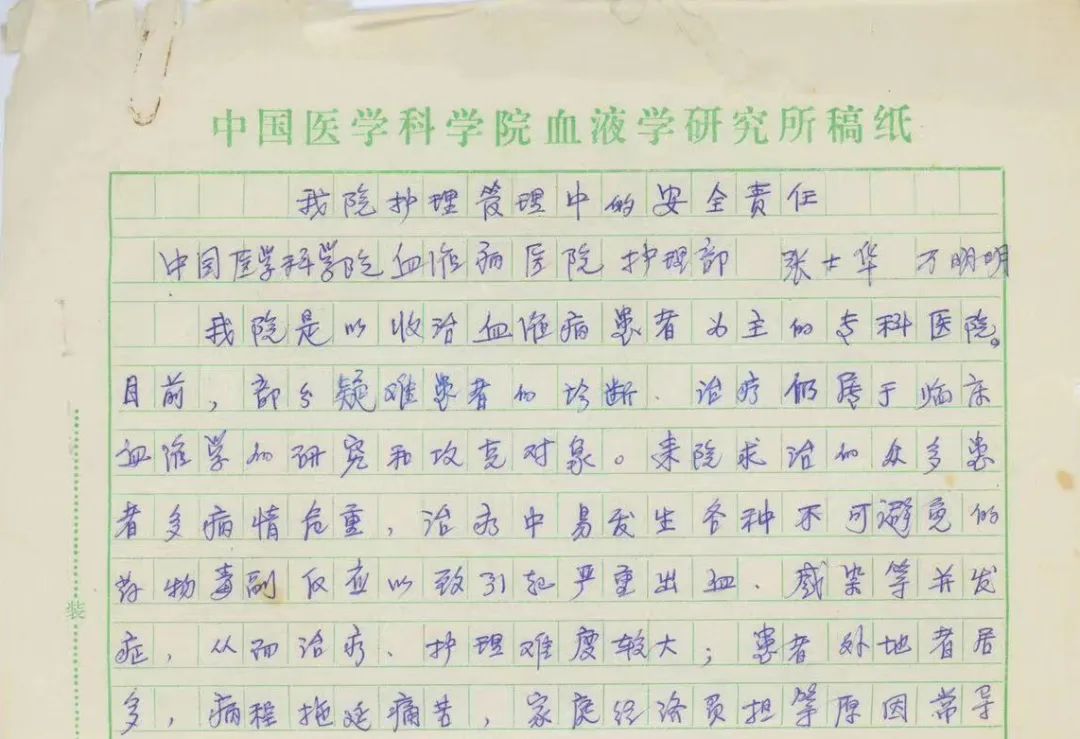 中国医学科学院血液学研究所稿纸
我院护理管理中的安全责任
中国医学科学院血液病医院护理部 张士华 万明明
我院是以收治血液病患者为主的专科医院。
目前，部分疑难患者的诊断、治疗仍居于临床
血液学的研究和攻克对象。来院求治的众多患
者多病情危重，治疗中易发生各种不可避免的
药物毒副反应以致引起严重出血、感染等并发
症，从而治疗、护理难度较大；患者外地者居
多，病程拖延痛苦，家庭经济负担等原因常导
装